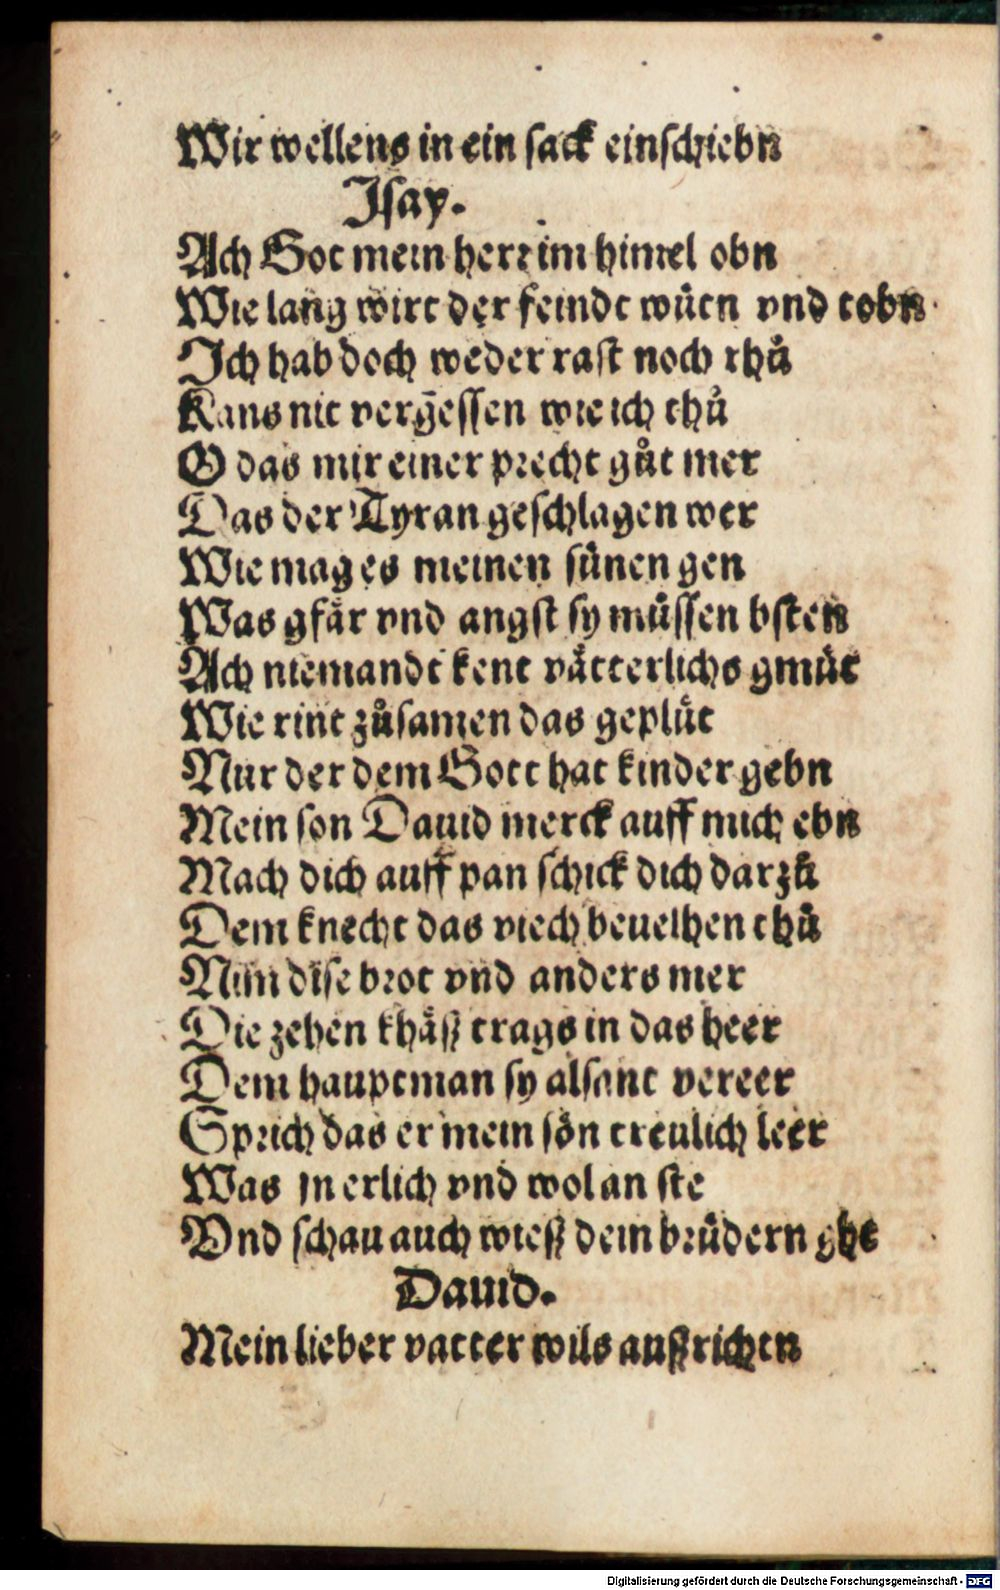 Wir wellens in ein sack einschiebn
Isay.
Ach Got mein herr im himel obn
Wie lang wirt der feindt wüten vnd tobn
Ich hab doch weder rast noch rhů
Kans nit vergessen wie ich thů
O das mir einer precht gůt mer
Das der Tyran geschlagen wer
Wie mag es meinen sünen gen
Was gfär vnd angst sy müssen bsten
Ach niemandt kent vätterlichs gmüt
Wie rint zůsamen das geplüt
Nur der dem Gott hat kinder gebn
Mein son Dauid merck auff mich ebn
Mach dich auff pan schick dich darzů
Dem knecht das viech beuelhen thů
Nim dise brot vnd anders mer
Die zehen khäß trags in das heer
Dem hauptman sy alsant vereer
Sprich das er mein sön treulich leer
Was jn erlich vnd wol an ste
Vnd schau auch wieß dein brüdern ghe
Dauid.
Mein lieber vatter wils außrichtn
Digitalisierung gefördert durch die Deutsche Forschungsgemeinschaft - DFG